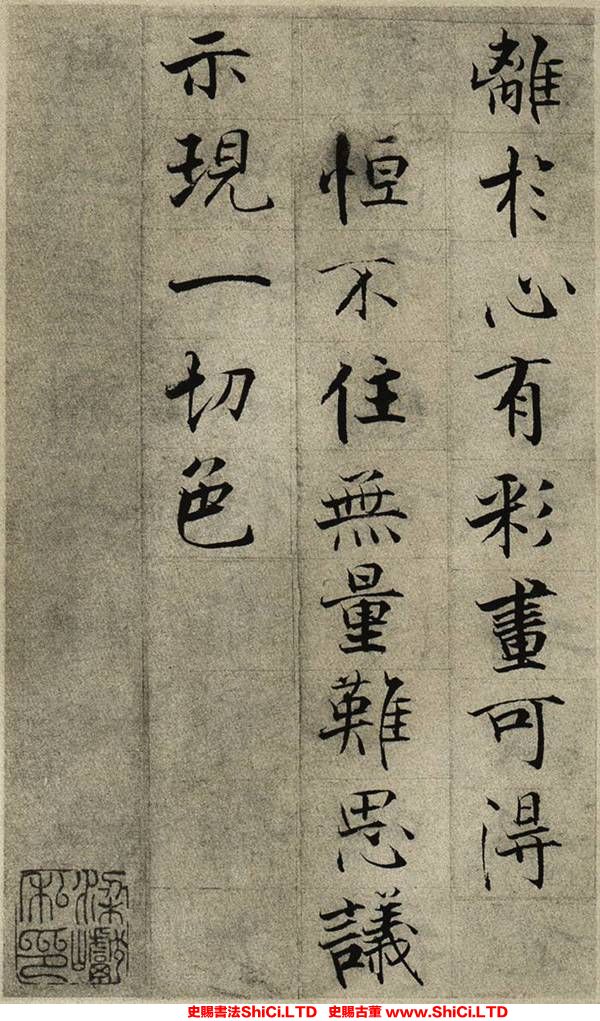 離於心有彩畫可得
恒不住無量難思議
示現一切色
史賜書法ShiCi.LTD 史賜古董 www.ShiCi.LTD